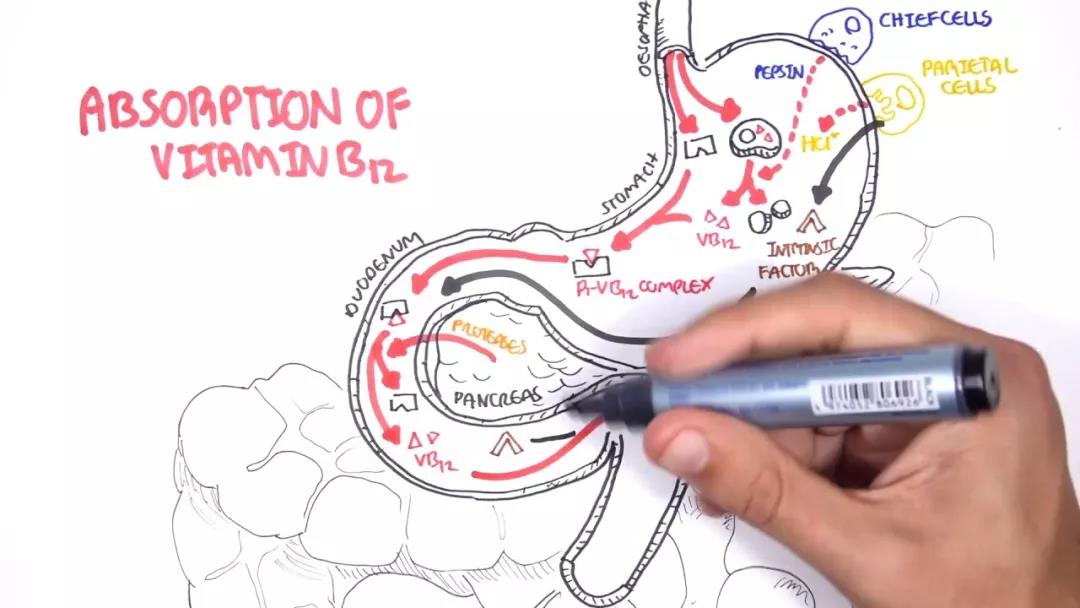 ABSORPTION OF
VITAMIN B12
OESOPHA
CHIEF CELLS
PEPSIN
PARIETAL
CELLS
HCl
STOMACH
VB12
INTRINSIC
FACTOR
R-VB12 COMPLEX
DUODENUM
PROTEASES
PANCREAS
VB12
BLACK
4 974052 806926